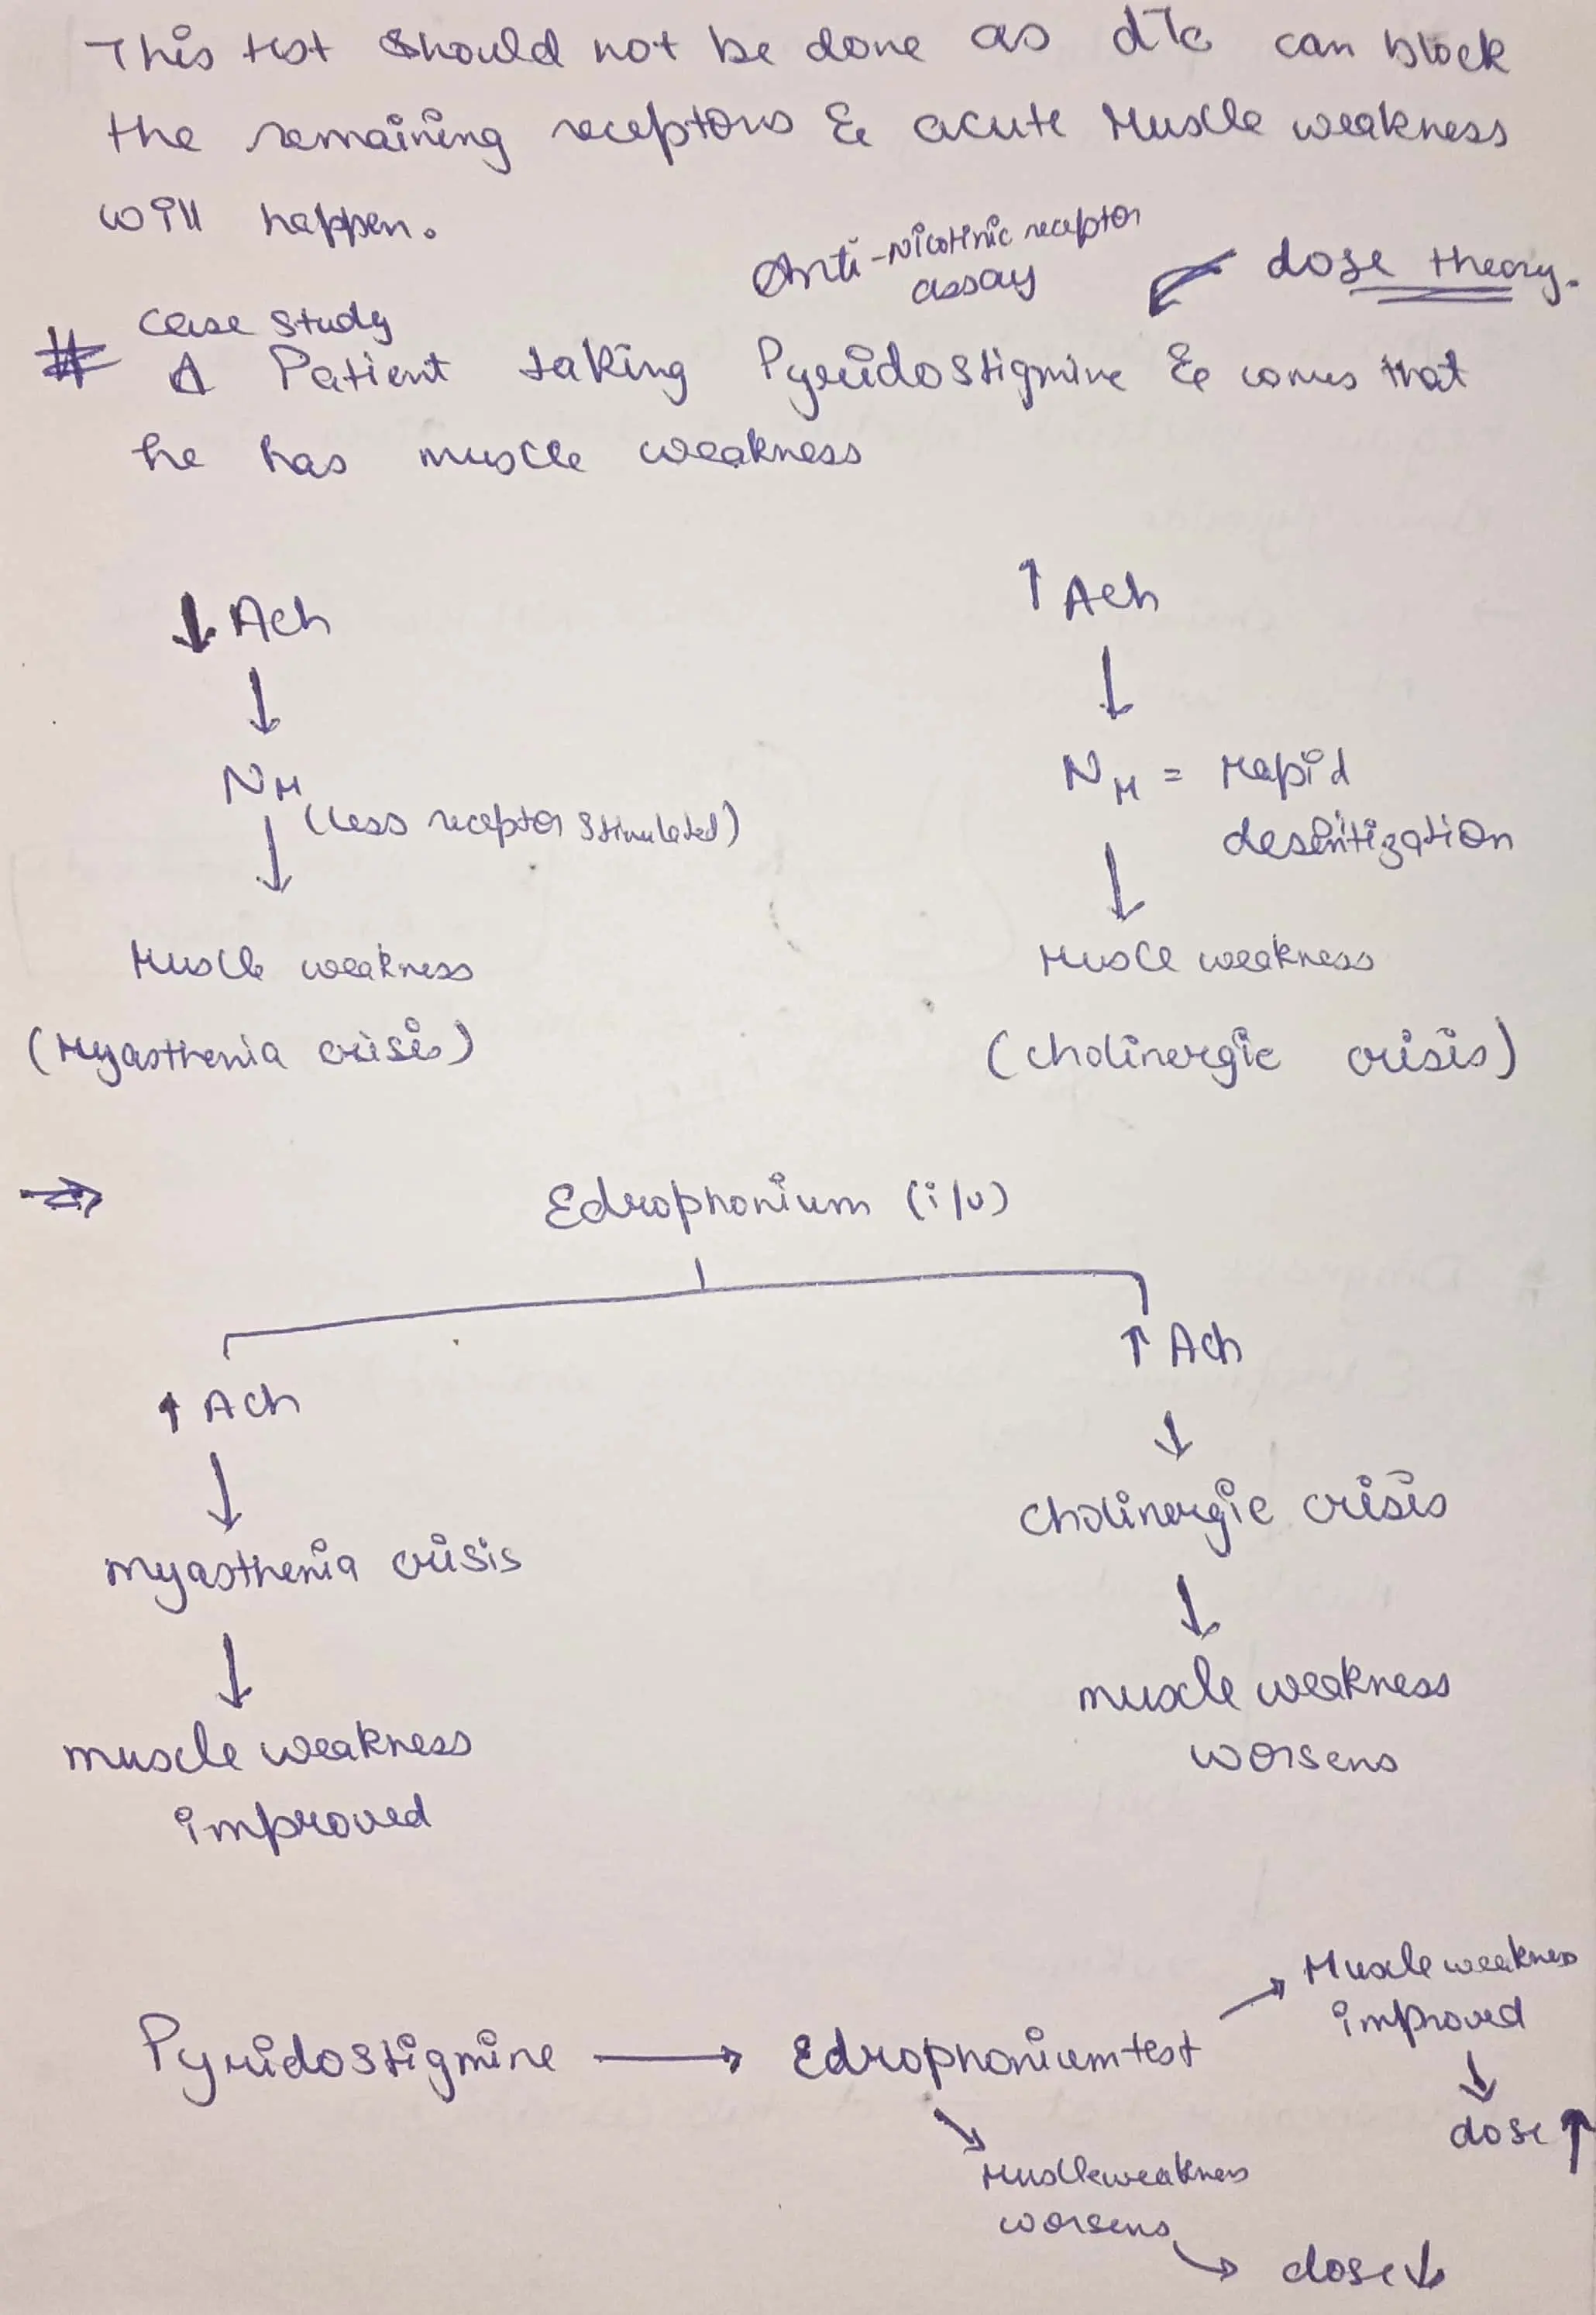 This test should not be done as dTc can block
the remaining receptors & acute Muscle weakness
will happen.
Anti-Nicotinic receptor
assay
dose theory.
# case study
A Patient taking Pyridostigmine & comes that
he has muscle weakness
↓ Ach
↓
NM
(less receptor stimulated)
↓
Muscle weakness
(Myasthenia crisis)
↑ Ach
↓
NM = rapid
desentization
↓
Muscle weakness
(cholinergic crisis)
⇒ Edrophonium (i/v)
↑ Ach
↓
myasthenia crisis
↓
muscle weakness
improved
↑ Ach
↓
cholinergic crisis
↓
muscle weakness
worsens
Pyridostigmine → Edrophonium test
↗ Muscle weakness
improved
↓
dose ↑
↘ Muscle weakness
worsens
↘ dose ↓